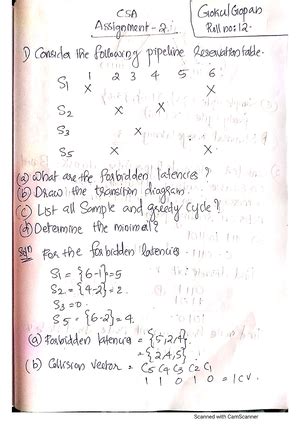 CSA
Assignment - 2.
Gokul Gopan
Roll no: 12.
1) Consider the following pipeline reservation table.
1 2 3 4 5 6
S1 X X
S2 X X
S3 X
S5 X X
(a) What are the forbidden latencies?
(b) Draw the transition diagram.
(c) List all Sample and greedy Cycle?
(d) Determine the minimal?
For the forbidden latencies
S1 = {6-1} = 5
S2 = {4-2} = 2.
S3 = 0.
S5 = {6-2} = 4.
(a) Forbidden latencies = {5,2,4}
= {2,4,5}.
(b) Collision vector = C5 C4 C3 C2 C1
1 1 0 1 0 = ICV.
Scanned with CamScanner